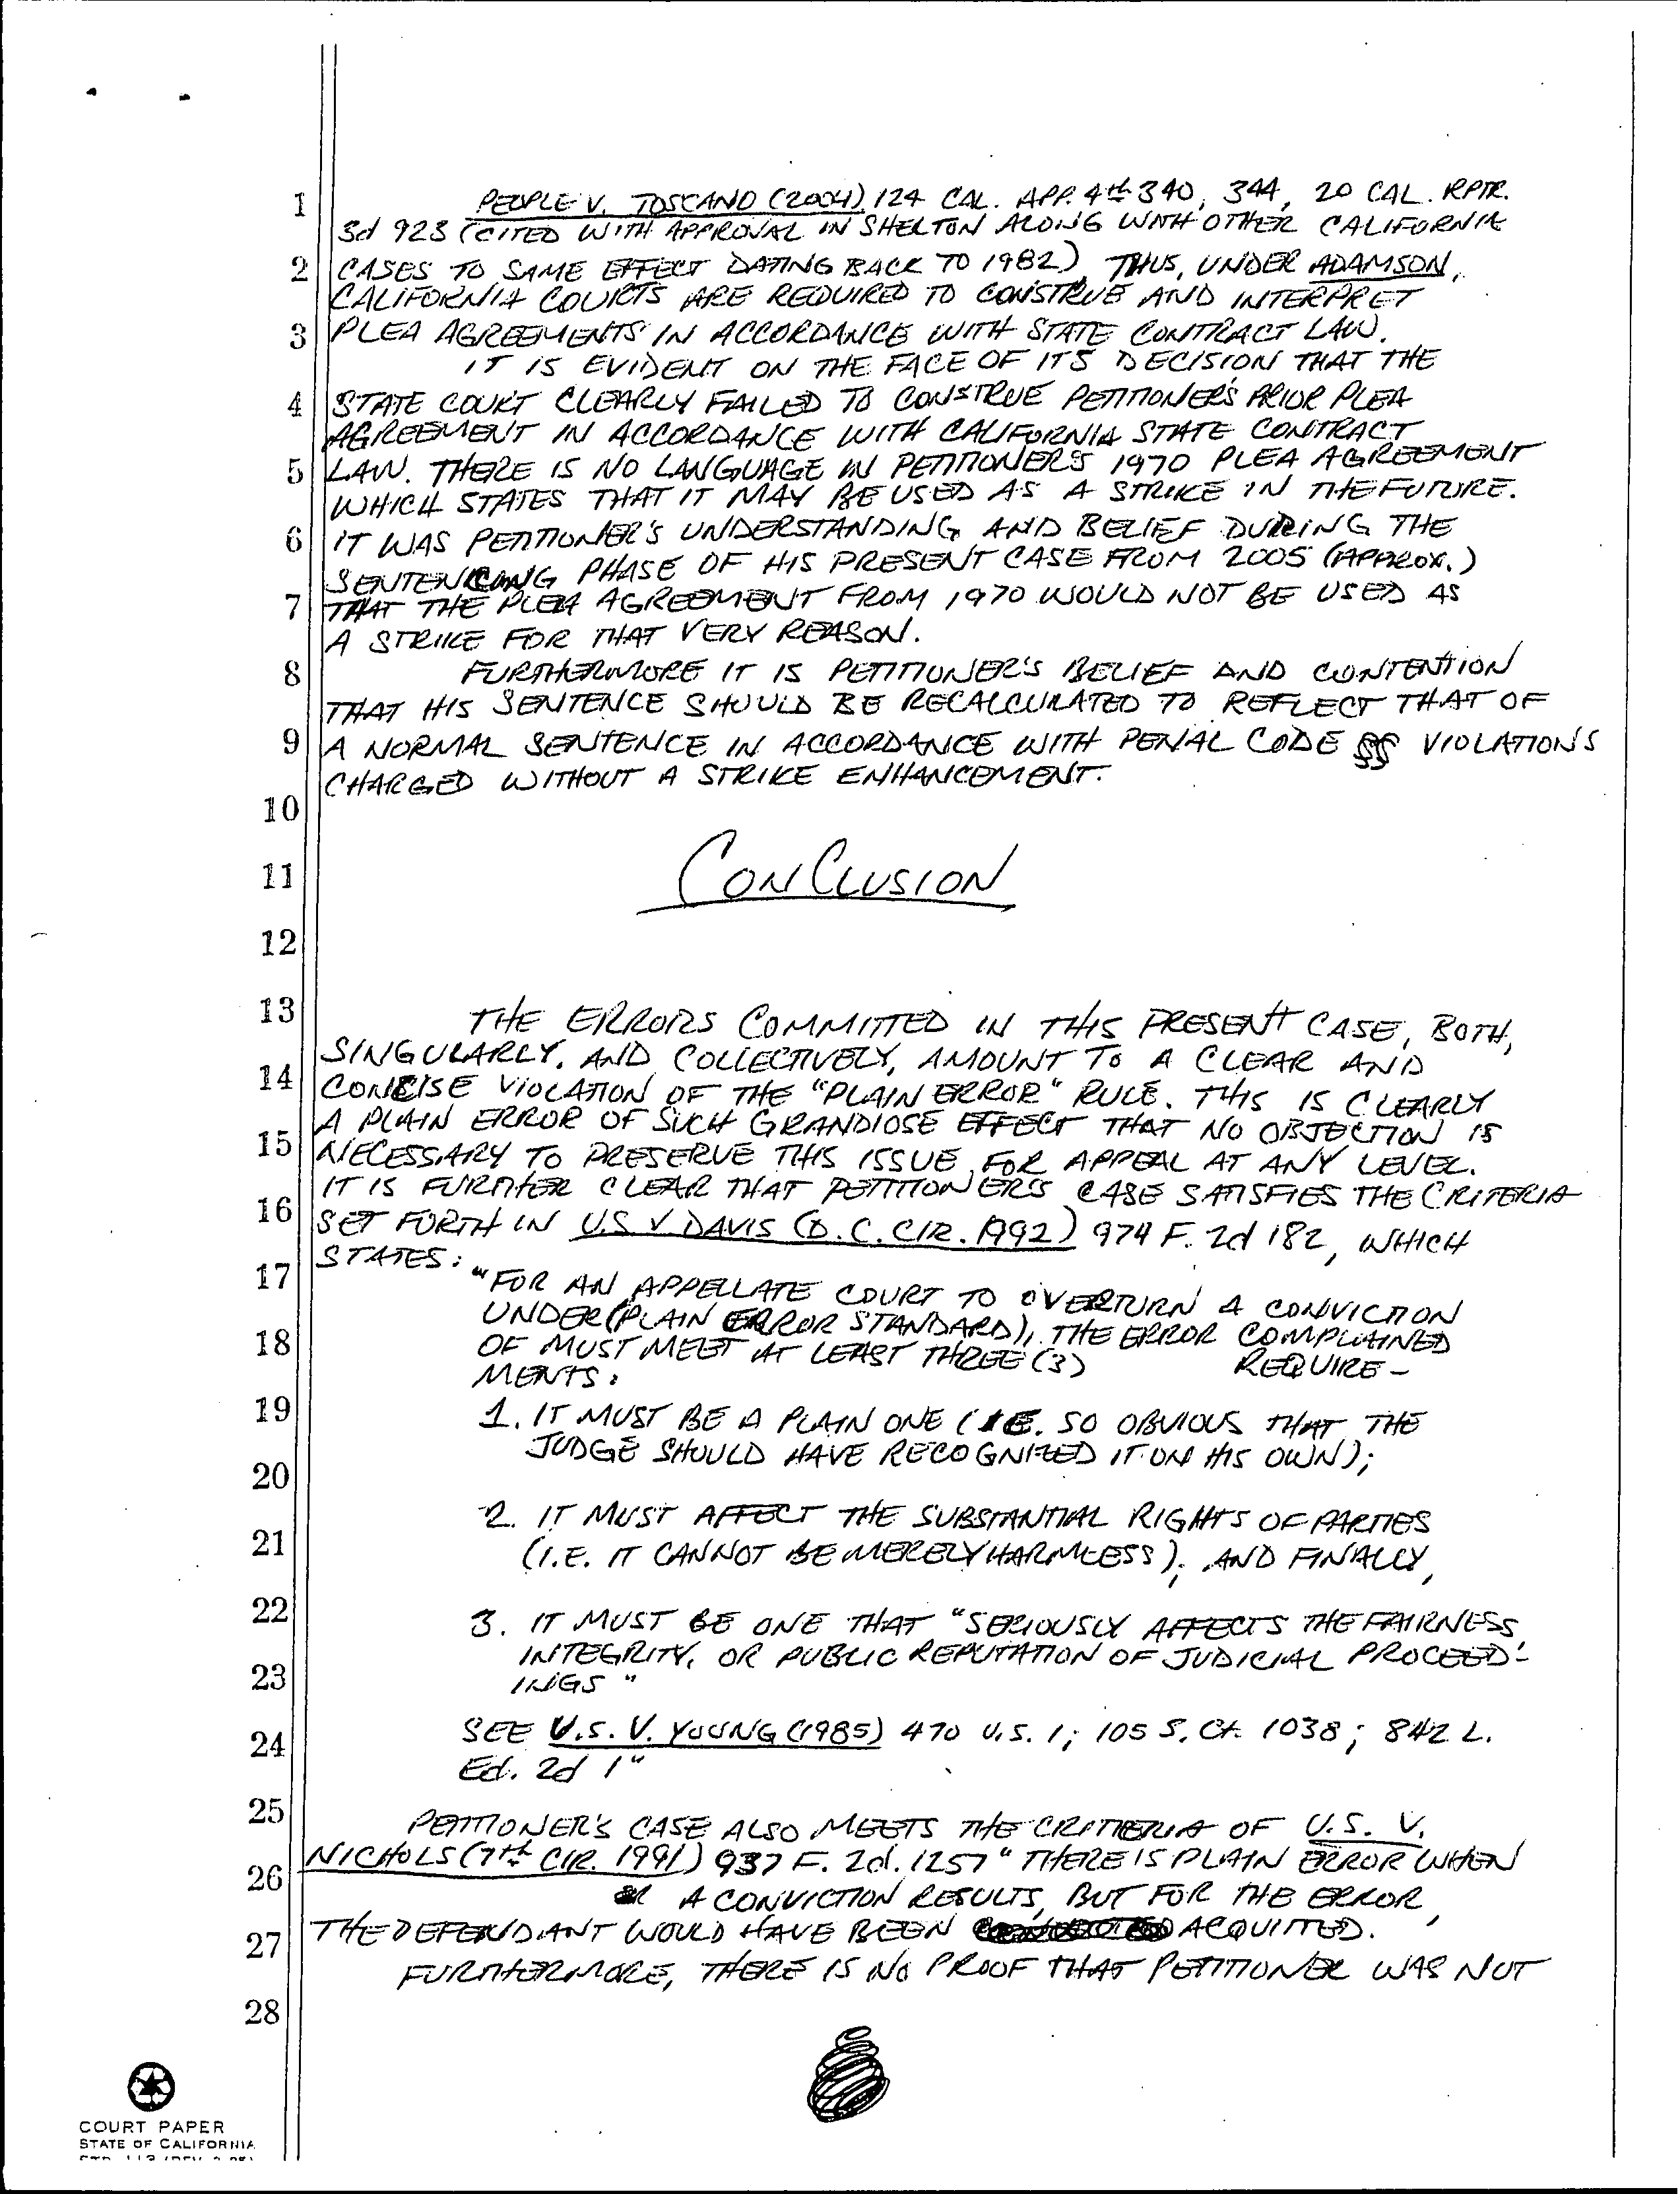 1 PEOPLE V. TOSCANO (2004) 124 CAL. APP. 4th 340, 344, 20 CAL. RPTR.
3d 923 (CITED WITH APPROVAL IN SHELTON ALONG WITH OTHER CALIFORNIA
2 CASES TO SAME EFFECT DATING BACK TO 1982) THUS, UNDER ADAMSON,
CALIFORNIA COURTS ARE REQUIRED TO CONSTRUE AND INTERPRET
3 PLEA AGREEMENTS IN ACCORDANCE WITH STATE CONTRACT LAW.
IT IS EVIDENT ON THE FACE OF ITS DECISION THAT THE
4 STATE COURT CLEARLY FAILED TO CONSTRUE PETITIONER'S PRIOR PLEA
AGREEMENT IN ACCORDANCE WITH CALIFORNIA STATE CONTRACT
5 LAW. THERE IS NO LANGUAGE IN PETITIONER'S 1970 PLEA AGREEMENT
WHICH STATES THAT IT MAY BE USED AS A STRIKE IN THE FUTURE.
6 IT WAS PETITIONER'S UNDERSTANDING AND BELIEF DURING THE
SENTENCING PHASE OF HIS PRESENT CASE FROM 2005 (APPROX.)
7 THAT THE PLEA AGREEMENT FROM 1970 WOULD NOT BE USED AS
A STRIKE FOR THAT VERY REASON.
8 FURTHERMORE IT IS PETITIONER'S BELIEF AND CONTENTION
THAT HIS SENTENCE SHOULD BE RECALCULATED TO REFLECT THAT OF
9 A NORMAL SENTENCE IN ACCORDANCE WITH PENAL CODE §§ VIOLATIONS
CHARGED WITHOUT A STRIKE ENHANCEMENT.
10
11 CONCLUSION
12
13 THE ERRORS COMMITTED IN THIS PRESENT CASE, BOTH,
SINGULARLY, AND COLLECTIVELY, AMOUNT TO A CLEAR AND
14 CONCISE VIOLATION OF THE "PLAIN ERROR" RULE. THIS IS CLEARLY
A PLAIN ERROR OF SUCH GRANDIOSE EFFECT THAT NO OBJECTION IS
15 NECESSARY TO PRESERVE THIS ISSUE FOR APPEAL AT ANY LEVEL.
IT IS FURTHER CLEAR THAT PETITIONER'S CASE SATISFIES THE CRITERIA
16 SET FORTH IN U.S. V DAVIS (D.C. CIR. 1992) 974 F. 2d 182, WHICH
STATES:
17 "FOR AN APPELLATE COURT TO OVERTURN A CONVICTION
UNDER (PLAIN ERROR STANDARD), THE ERROR COMPLAINED
18 OF MUST MEET AT LEAST THREE (3) REQUIRE-
MENTS:
19 1. IT MUST BE A PLAIN ONE (I.E. SO OBVIOUS THAT THE
JUDGE SHOULD HAVE RECOGNIZED IT ON HIS OWN);
20
2. IT MUST AFFECT THE SUBSTANTIAL RIGHTS OF PARTIES
21 (I.E. IT CANNOT BE MERELY HARMLESS); AND FINALLY,
22 3. IT MUST BE ONE THAT "SERIOUSLY AFFECTS THE FAIRNESS,
INTEGRITY, OR PUBLIC REPUTATION OF JUDICIAL PROCEED-
23 INGS"
24 SEE U.S. V. YOUNG (1985) 470 U.S. 1; 105 S. Ct. 1038; 842 L.
Ed. 2d 1"
25 PETITIONER'S CASE ALSO MEETS THE CRITERIA OF U.S. V.
26 NICHOLS (7th CIR. 1991) 937 F. 2d. 1257 "THERE IS PLAIN ERROR WHEN
A CONVICTION RESULTS, BUT FOR THE ERROR,
27 THE DEFENDANT WOULD HAVE BEEN ACQUITTED.
FURTHERMORE, THERE IS NO PROOF THAT PETITIONER WAS NOT
28
COURT PAPER
STATE OF CALIFORNIA